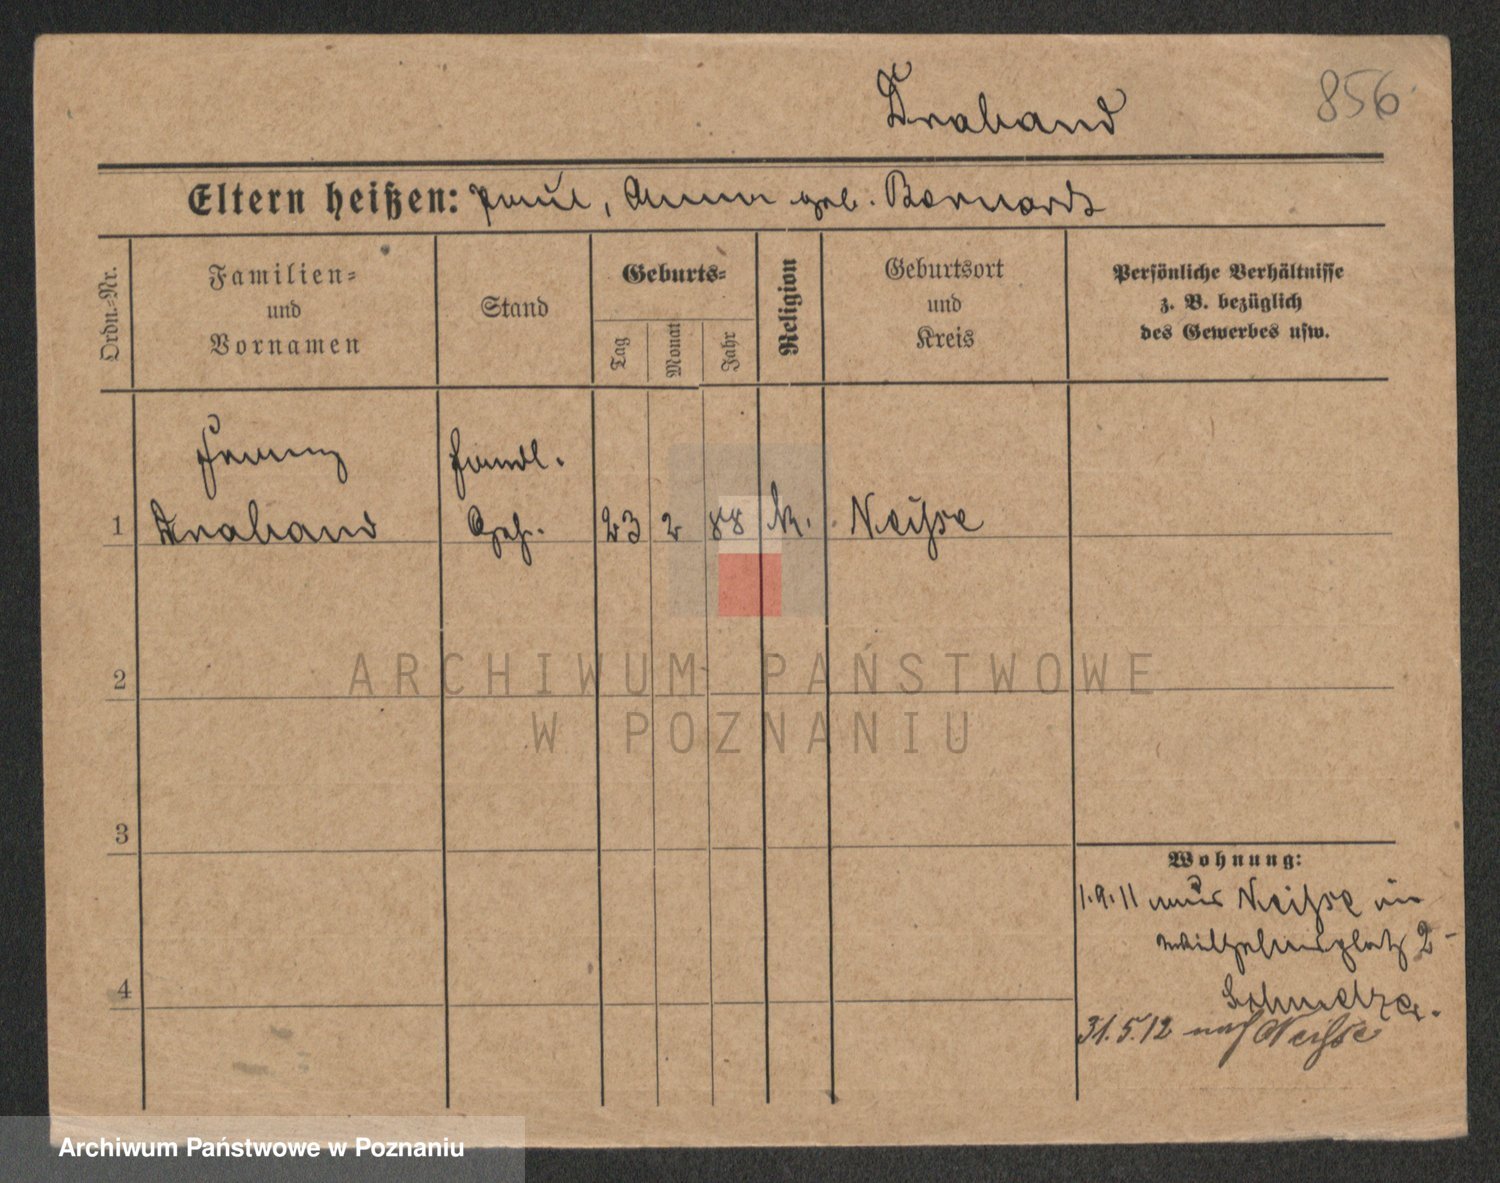 Draband
856
Eltern heißen: Paul, Anna geb. Bernardt
Ordn.=Nr.
Familien=
und
Vornamen
Stand
Geburts=
Tag
Monat
Jahr
Religion
Geburtsort
und
Kreis
Persönliche Verhältnisse
z. B. bezüglich
des Gewerbes usw.
Franz
Handl.
1 Draband Geh. 23 2 88 k. Neisse
2
3
4
Wohnung:
1.9.11 aus Neisse in
Wilhelmsplatz 2
31.5.12 nach Neisse
ARCHIWUM PAŃSTWOWE
W POZNANIU
Archiwum Państwowe w Poznaniu